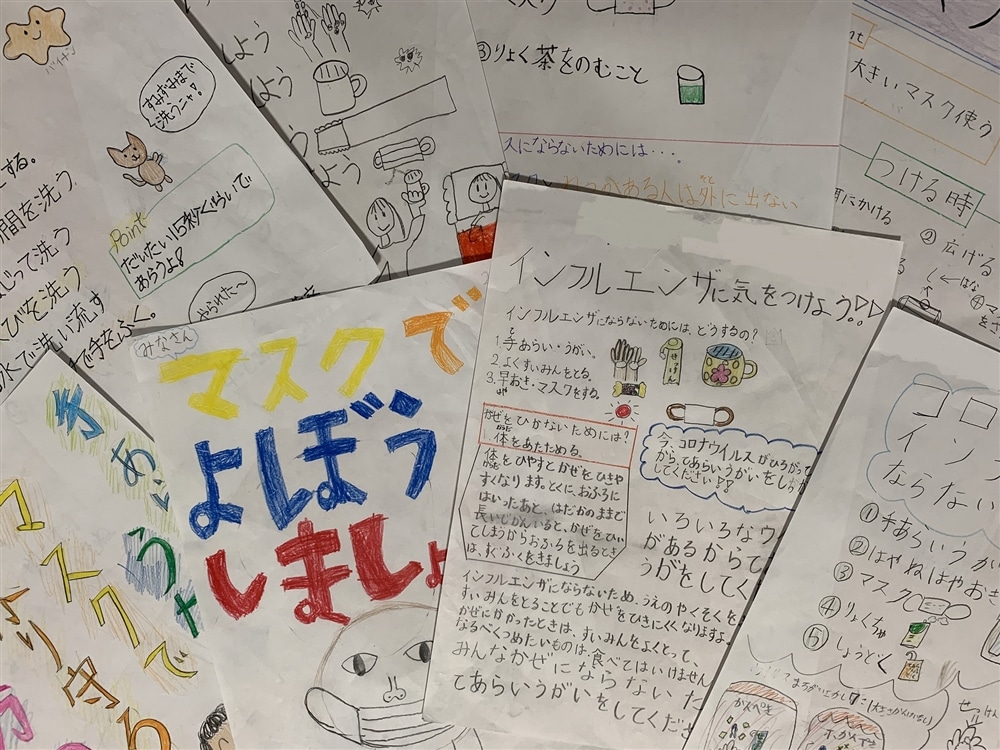 バイキン
すみずみまで
洗うニャ!
する。
間を洗う
じって洗う
くびを洗う
水で洗い流す
で手をふく。
Point
だいたい15秒くらいで
あらうよ!
やられた〜
しよう
よう
よう
マスク
③りょく茶をのむこと
人にならないためには・・・
ある人は外に出ない
大きいマスク使う
つける時
耳にかける
②広げる
はな
インフルエンザに気をつけよう!!
インフルエンザにならないためには、どうするの?
1.手あらい・うがい。
2.よくすいみんをとる。
3.早おき・マスクをする。
せっけん
かぜをひかないためには?
体をあたためる。
体をひやすとかぜをひきや
すくなります。とくに、おふろに
はいったあと、はだかのままで
長いじかんいると、かぜをひい
てしまうからおふろを出るとき
は、すぐふくをきましょう
今、コロナウイルスがひろがって
からてあらいうがいをしっか
してください!?
いろいろなウ
があるからて
うがをしてく
インフルエンザにならないため、うえのやくそくを
すいみんをとることでもかぜをひきにくくなりますよ。
かぜにかかったときは、すいみんをよくとって、
なるべくつめたいものは、食べてはいけません
みんなかぜにならないた
てあらいうがいをしてくださ
みなさん
マスクで
よぼう
しましょ
手あらい
うが
マスクで
守る
コロ
インフ
ならない
①手あらいうがい
②はやねはやおき
③マスク
④りょくちゃ
⑤しょうどく
かんぺき
せっけん